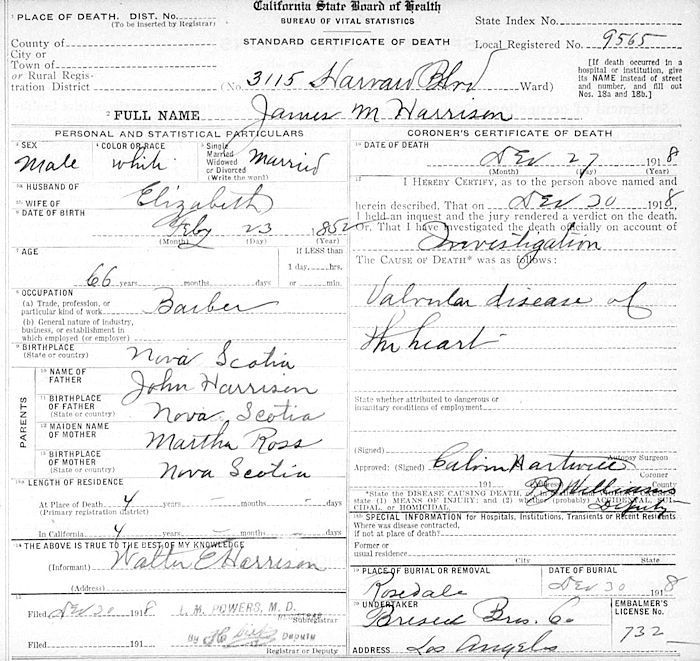 California State Board of Health
BUREAU OF VITAL STATISTICS
STANDARD CERTIFICATE OF DEATH
¹ PLACE OF DEATH. DIST. No.
(To be inserted by Registrar)
State Index No.
Local Registered No. 9565
County of
City or
Town of
or Rural Regis-
tration District
(No. 3115 Harvard Blvd Ward)
[If death occurred in a
hospital or institution, give
its NAME instead of street
and number, and fill out
Nos. 18a and 18b.]
² FULL NAME James M Harrison
PERSONAL AND STATISTICAL PARTICULARS
³ SEX
Male
⁴ COLOR OR RACE
white
⁵ Single
Married
Widowed
or Divorced
(Write the word)
Married
5a HUSBAND OF
5b WIFE OF
Elizabeth
⁶ DATE OF BIRTH
Feby 23 1852
(Month) (Day) (Year)
⁷ AGE
66 years months days
If LESS than
1 day hrs.
or min.
⁸ OCCUPATION
(a) Trade, profession, or
particular kind of work
Barber
(b) General nature of industry,
business, or establishment in
which employed (or employer)
⁹ BIRTHPLACE
(State or country)
Nova Scotia
PARENTS
¹⁰ NAME OF
FATHER
John Harrison
¹¹ BIRTHPLACE
OF FATHER
(State or country)
Nova Scotia
¹² MAIDEN NAME
OF MOTHER
Martha Ross
¹³ BIRTHPLACE
OF MOTHER
(State or country)
Nova Scotia
LENGTH OF RESIDENCE
At Place of Death 4 years - months - days
(Primary registration district)
In California 4 years - months - days
¹⁴ THE ABOVE IS TRUE TO THE BEST OF MY KNOWLEDGE
(Informant) Walter E Harrison
(Address)
Filed Dec 30 1918 L. M. POWERS, M. D.
Subregistrar
by Deputy
Filed 191
Registrar or Deputy
CORONER'S CERTIFICATE OF DEATH
DATE OF DEATH
Dec 27 1918
(Month) (Day) (Year)
I HEREBY CERTIFY, as to the person above named and
herein described, That on Dec 30 1918,
I held an inquest and the jury rendered a verdict on the death.
Or, That I have investigated the death officially on account of
Investigation
The CAUSE OF DEATH* was as follows:
Valvular disease of
the heart -
State whether attributed to dangerous or
insanitary conditions of employment
(Signed)
Autopsy Surgeon
Approved: (Signed) Calvin Hartwell
Coroner
191 (Address) County
Williams
Deputy
*State the DISEASE CAUSING DEATH, or, in
state (1) MEANS OF INJURY; and (2) whether (probably) ACCIDENTAL, SUI-
CIDAL, or HOMICIDAL.
SPECIAL INFORMATION for Hospitals, Institutions, Transients or Recent Residents
Where was disease contracted,
if not at place of death?
Former or
usual residence
City State
¹⁹ PLACE OF BURIAL OR REMOVAL
Rosedale
DATE OF BURIAL
Dec 30 1918
²⁰ UNDERTAKER
Bresee Bros. Co
EMBALMER'S
LICENSE No.
732
ADDRESS Los Angeles